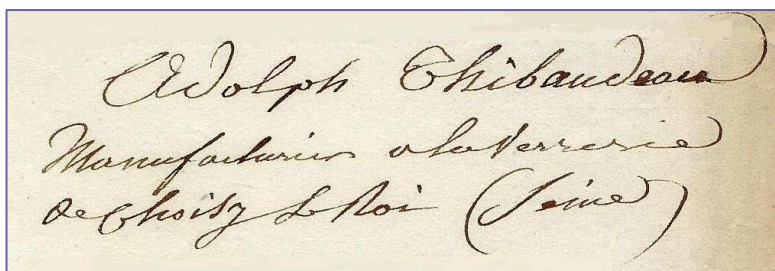 Adolph Thibaudeau
Manufacturier a la Verrerie
de Choisy Le Roi (Seine)